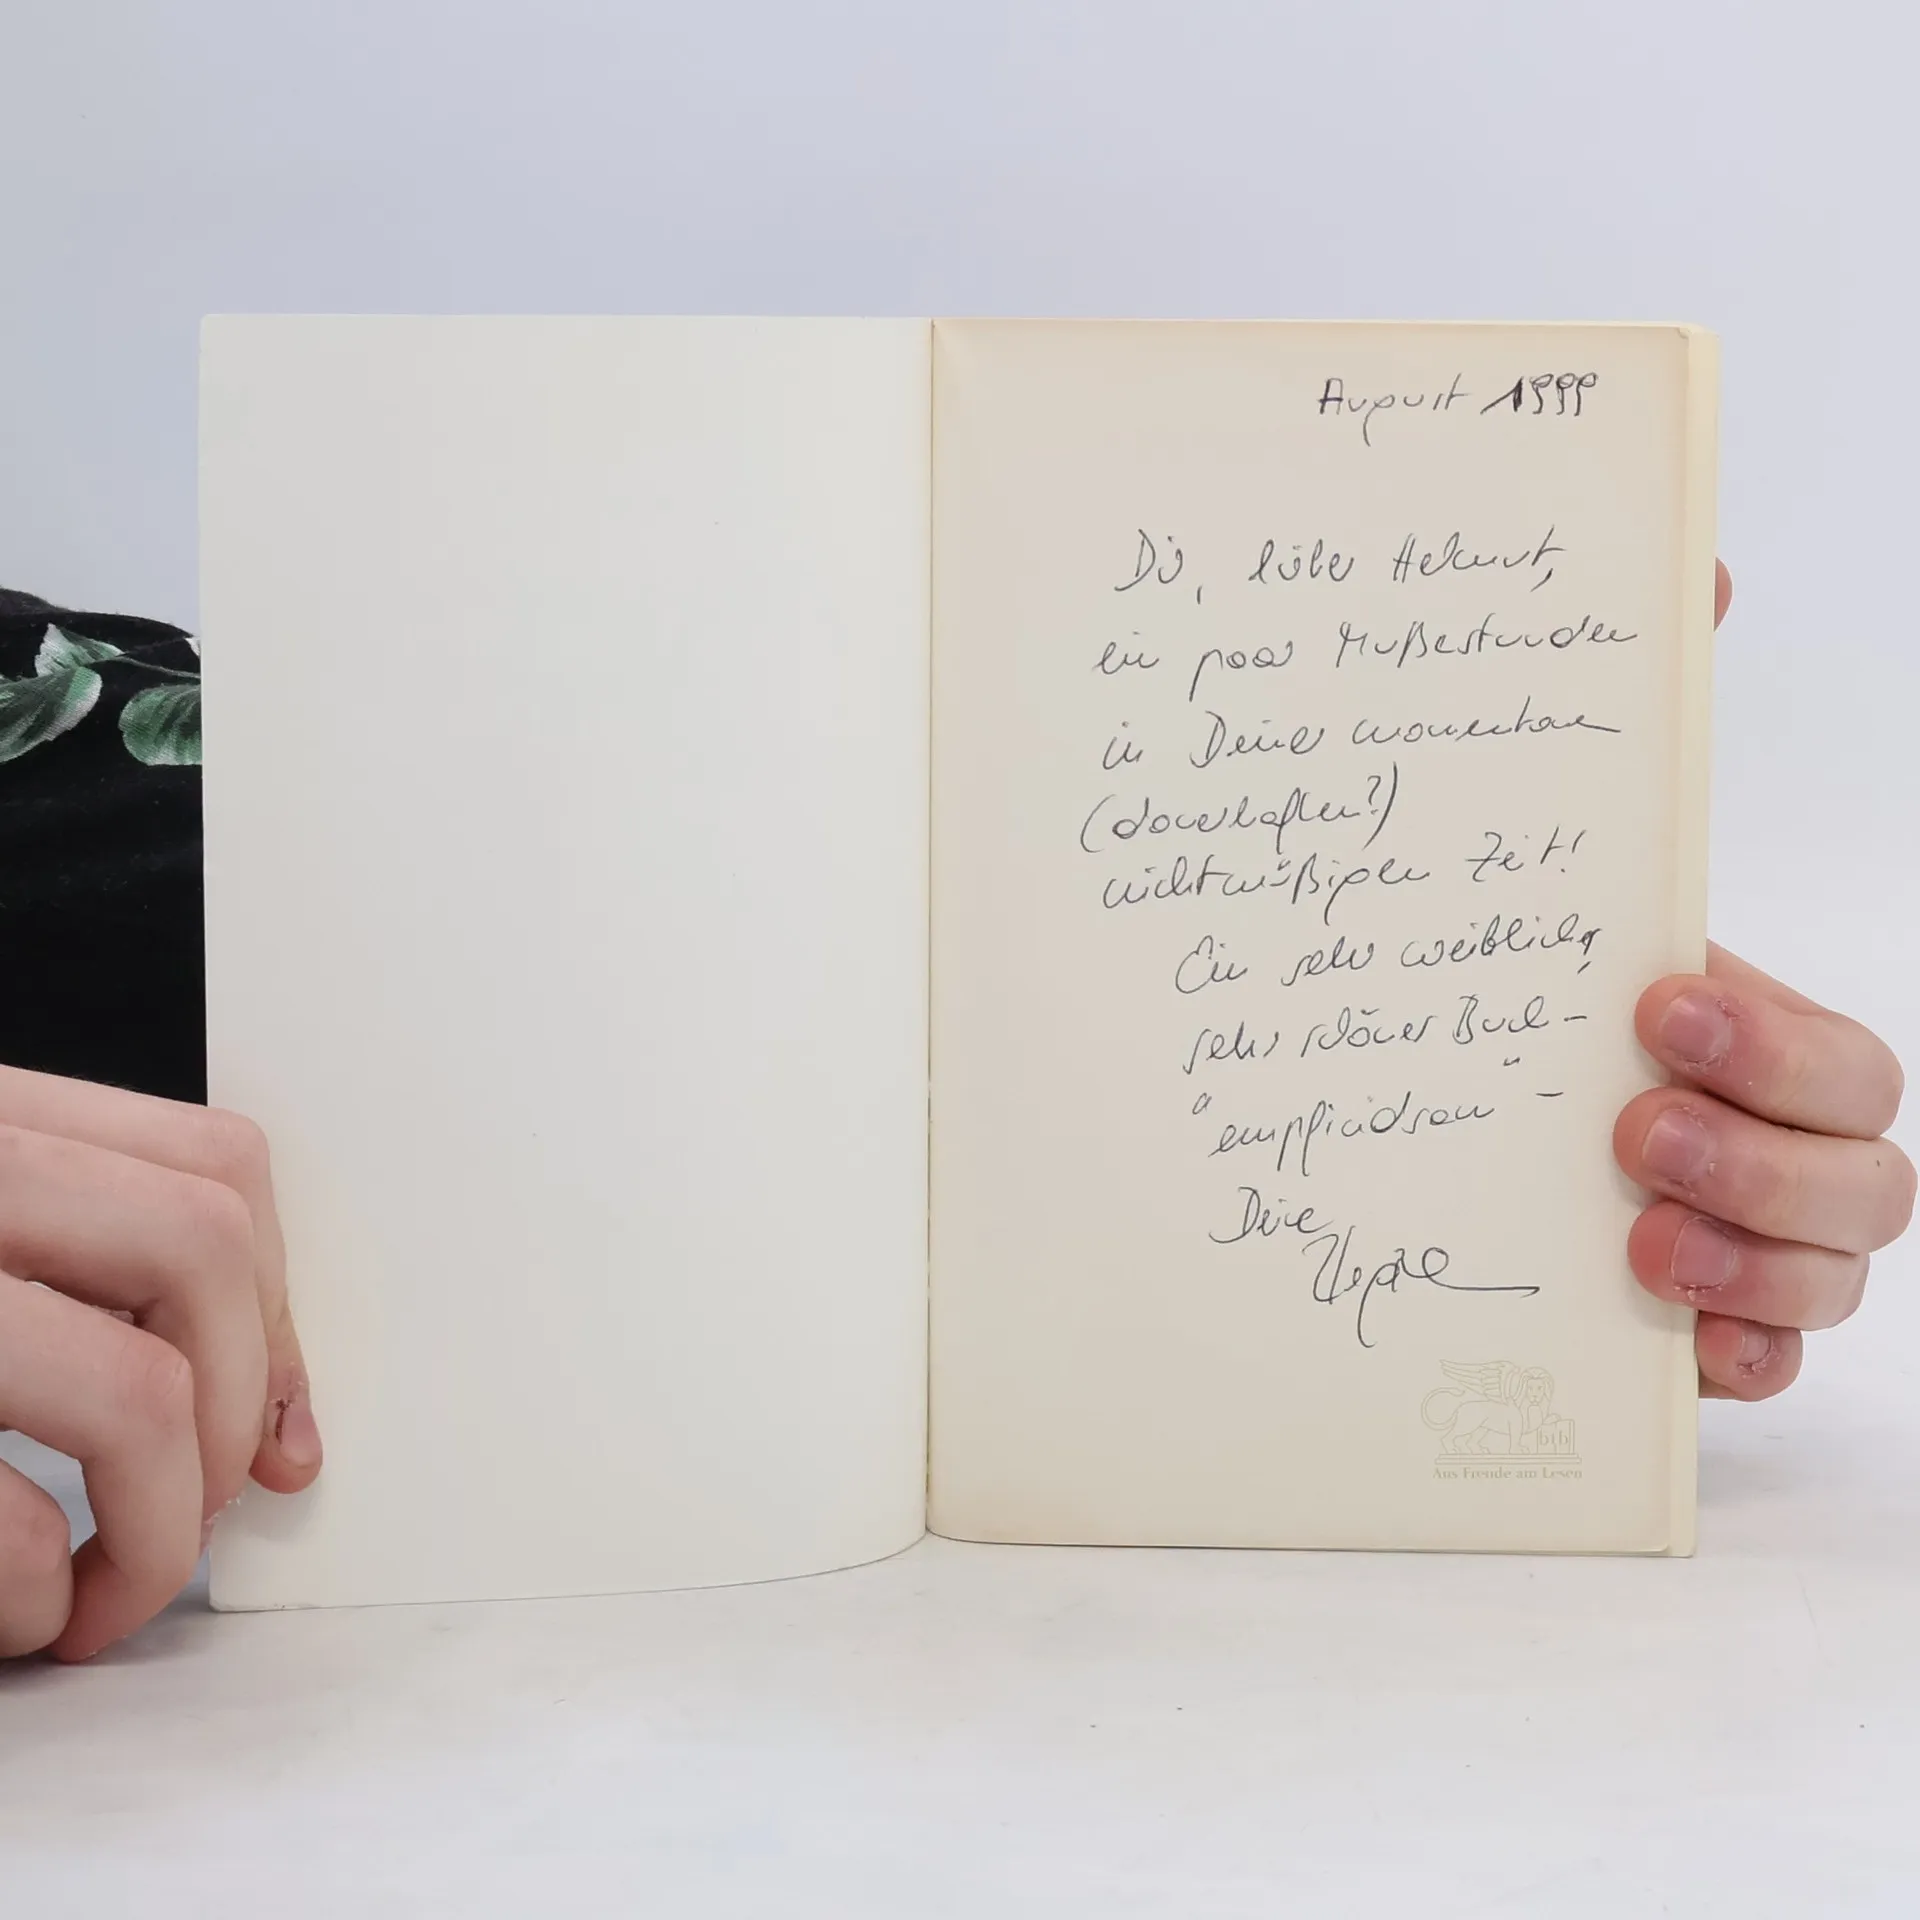 August 1999
Dir, lieber Helmut,
ein paar Mußestunden
in Deiner momentanen
(dauerhaften?)
nichtmüßigen Zeit!
Ein sehr weibliches,
sehr schönes Buch -
"empfindsam" -
Deine
btb
Aus Freude am Lesen